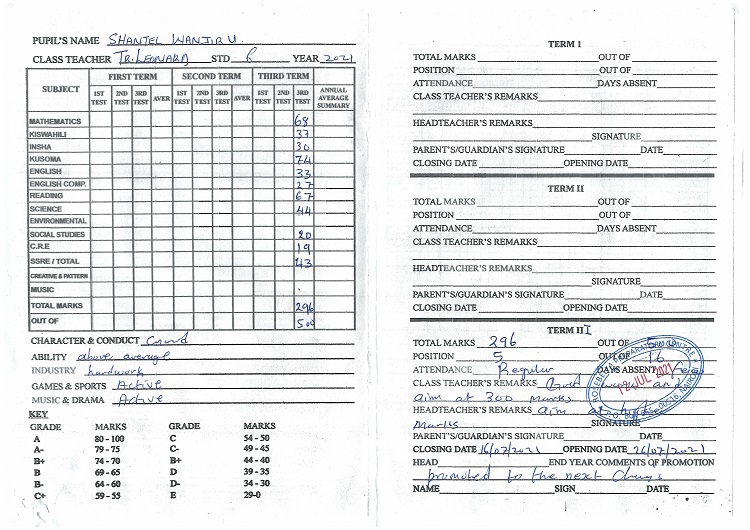 PUPIL'S NAME SHANTEL WANJIRU
CLASS TEACHER TR. LEONARD STD 6 YEAR 2021
SUBJECT FIRST TERM SECOND TERM THIRD TERM ANNUAL AVERAGE SUMMARY
1ST TEST 2ND TEST 3RD TEST AVER 1ST TEST 2ND TEST 3RD TEST AVER 1ST TEST 2ND TEST 3RD TEST
MATHEMATICS 68
KISWAHILI 37
INSHA 30
KUSOMA 74
ENGLISH 33
ENGLISH COMP. 27
READING 67
SCIENCE 44
ENVIRONMENTAL
SOCIAL STUDIES 20
C.R.E 19
SSRE / TOTAL 43
CREATIVE & PATTERN
MUSIC
TOTAL MARKS 296
OUT OF 500
CHARACTER & CONDUCT Good
ABILITY above average
INDUSTRY hardwork
GAMES & SPORTS Active
MUSIC & DRAMA Active
KEY
GRADE MARKS GRADE MARKS
A 80 - 100 C 54 - 50
A- 79 - 75 C- 49 - 45
B+ 74 - 70 B+ 44 - 40
B 69 - 65 D 39 - 35
B- 64 - 60 D- 34 - 30
C+ 59 - 55 E 29-0
TERM I
TOTAL MARKS OUT OF
POSITION OUT OF
ATTENDANCE DAYS ABSENT
CLASS TEACHER'S REMARKS
HEADTEACHER'S REMARKS
SIGNATURE
PARENT'S/GUARDIAN'S SIGNATURE DATE
CLOSING DATE OPENING DATE
TERM II
TOTAL MARKS OUT OF
POSITION OUT OF
ATTENDANCE DAYS ABSENT
CLASS TEACHER'S REMARKS
HEADTEACHER'S REMARKS
SIGNATURE
PARENT'S/GUARDIAN'S SIGNATURE DATE
CLOSING DATE OPENING DATE
TERM III
TOTAL MARKS 296 OUT OF 500
POSITION 5 OUT OF 16
ATTENDANCE Regular DAYS ABSENT
CLASS TEACHER'S REMARKS Good
aim at 300 marks
HEADTEACHER'S REMARKS aim
marks SIGNATURE
PARENT'S/GUARDIAN'S SIGNATURE DATE
CLOSING DATE 16/07/2021 OPENING DATE 26/07/2021
HEAD END YEAR COMMENTS OF PROMOTION
promoted to the next
NAME SIGN DATE
JUL 2021